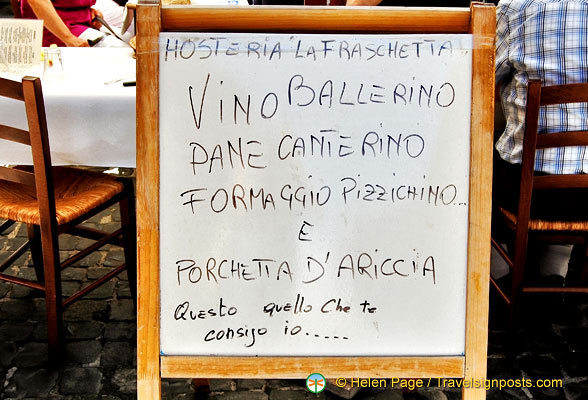 HOSTERIA "LA FRASCHETTA"
VINO BALLERINO
PANE CANTERINO
FORMAGGIO PIZZICHINO...
E
PORCHETTA D'ARICCIA
Questo quello che te
consigo io.....
© Helen Page / Travelsignposts.com